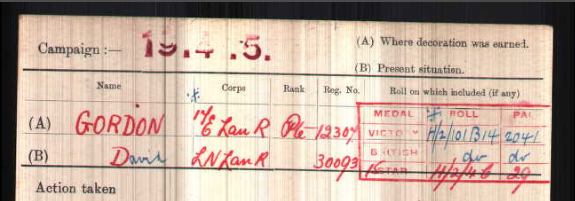 Campaign :— 1914 .5.
(A) Where decoration was earned.
(B) Present situation.
Name Corps Rank Reg. No. Roll on which included (if any)
MEDAL ROLL PAGE
(A) GORDON E Lan R Pte 12307
VICTORY H/2/101B14 2041
BRITISH do do
(B) David LN Lan R 30093
STAR H/2/4 29
Action taken